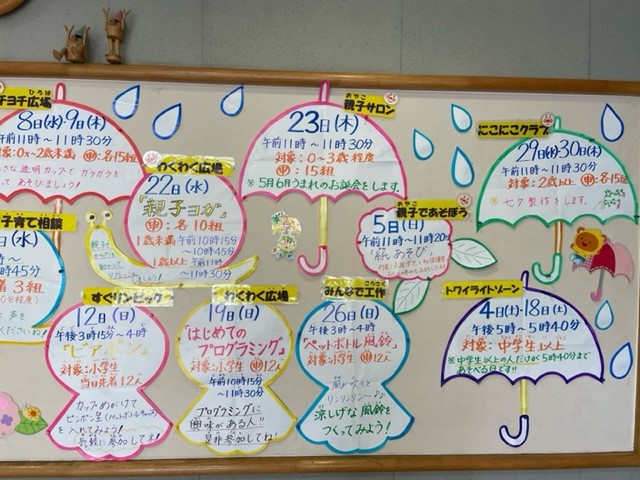 チヨチ広場
ひろば
8日(水)・9日(木)
午前11時〜11時30分
対象:0歳〜2歳未満 申:各15組
さな透明カップで ガラガラを
って あそびましょう!
子育て相談
日(水)
時45分
3組
わくわく広場
22日(水)
「親子ヨガ」
申:各10組
1歳未満 午前10時15分
〜10時45分
1歳以上 午前11時
〜11時30分
おやこ
親子サロン
23日(木)
午前11時〜11時30分
対象:0〜3歳程度
申:15組
※5月6月うまれのお誕会をします。
おやこ
親子であそぼう
5日(日)
午前11時〜11時20分
「紙あそび」
にこにこクラブ
29日(水)30日(木)
午前11時〜11時30分
対象:2歳以上 申:各15組
※七夕製作をします。
すぐリンピック
12日(日)
午後3時15分〜4時
「ピアポン」
対象:小学生
当日先着12人
カップめがけて
ピンポン玉
を入れてみよう!
気軽に参加して木!
わくわく広場
19日(日)
「はじめての
プログラミング」
対象:小学生 申12人
午前10時15分
〜11時30分
プログラミングに
興味がある人!!
是非参加してね!
こうさく
みんなで工作
26日(日)
午後3時〜4時
「ペットボトル風鈴」
対象:小学生 申12人
風が吹くと
リンリンリン〜♪♪
涼しげな風鈴を
つくってみよう!
トワイライトゾーン
4日(土)・18日(土)
午後5時〜5時40分
対象:中学生以上
※中学生以上の人だけが5時40分まで
あそべる日です!!